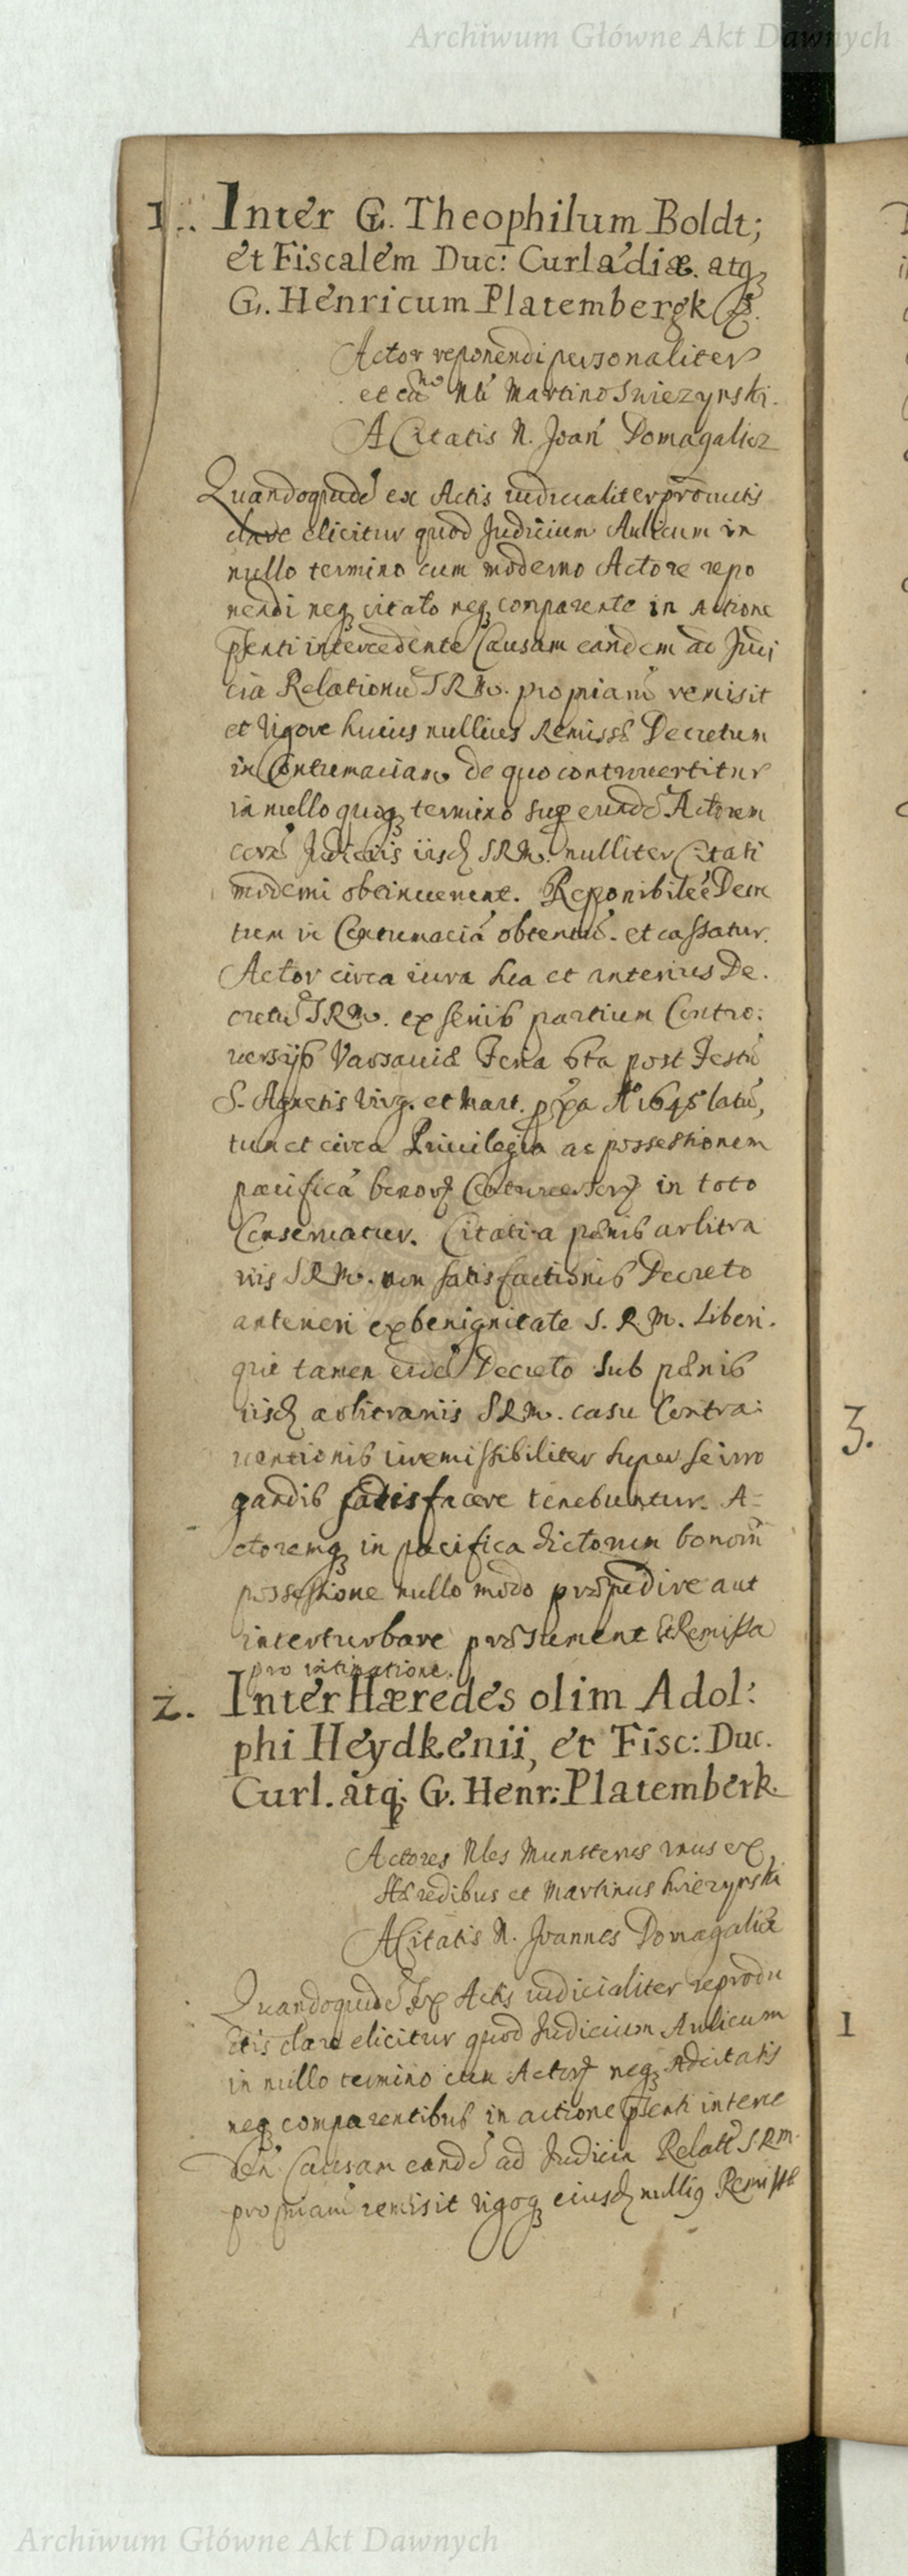 Archiwum Główne Akt Dawnych
1. Inter G. Theophilum Boldt;
et Fiscalem Duc: Curladiæ. atq
G. Henricum Platembergk
Actor reponendi personaliter
et cū Nli Martino Swiezynski.
A Citatis N. Joan Domagalicz
Quandoquidē ex Actis iudicialiter
clare elicitur quod Judicium Aulicum in
nullo termino cum moderno Actore repo
nendi neq citato neq comparente in Actione
pnti intercedente Causam eandem ad Judi
cia Relationū SRM. propriam remisit
et vigore huius nullius Remissæ Decretum
in Contumaciam de quo controvertitur
in nullo quoq termino super eundē Actorem
corā Judiciis iisd SRM. nulliter Citati
moderni obtinuerunt. Reponibile Decre
tum in Contumaciā obtentū. et cassatur.
Actor circa iura sua et anterius De.
cretū SRM. ex senis partium Contro:
versijs Varsaviæ Feria 6ta post Festū
S. Agnetis Virg. et Mart. pxa Ao 1645 latū,
tum et circa Privilegia ac possessionem
pacificā bonor Controversor in toto
Conservatur. Citati a pænis arbitra
riis SRM. non satisfactionis Decreto
anteriori ex benignitate S. R M. Liberi.
qui tamen eidē Decreto sub pænis
iisd arbitrariis SRM. casu Contra:
ventionis irremissibiliter super se irro
gandis satisfacere tenebuntur. A=
ctoremq in pacifica dictorum bonorū
possessione nullo modo præpedire aut
interturbare præsument Et Remissa
pro intimatione.
2. Inter Hæredes olim Adol:
phi Heydkenii, et Fisc: Duc.
Curl. atq; G. Henr: Platemberk.
Actores Nles Munsterus unus ex
Hæredibus et Martinus Swiezynski
A Citatis N. Joannes Domagalicz
Quandoquidē Ex Actis iudicialiter reprodu
ctis clare elicitur quod Judicium Aulicum
in nullo termino cum Actor neq Adcitatis
neq comparentibus in actione pnti interce
den Causam eandē ad Judicia Relatt SRM.
propriam remisit vigoq eiusd nulliq Remissæ
3.
1
Archiwum Główne Akt Dawnych